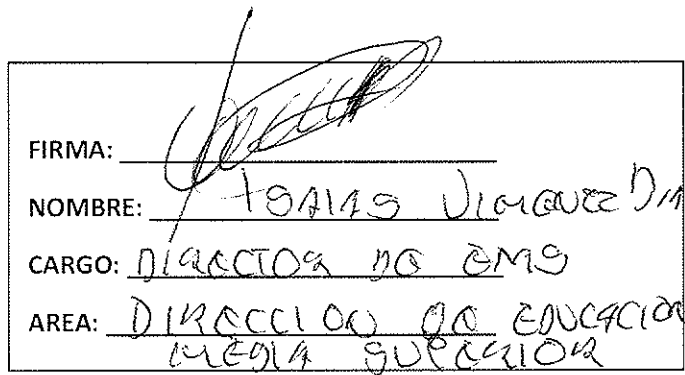 FIRMA:
NOMBRE: ISAIAS
CARGO: DIRECTOR DE EMS
AREA: DIRECCION DE EDUCACION
MEDIA SUPERIOR